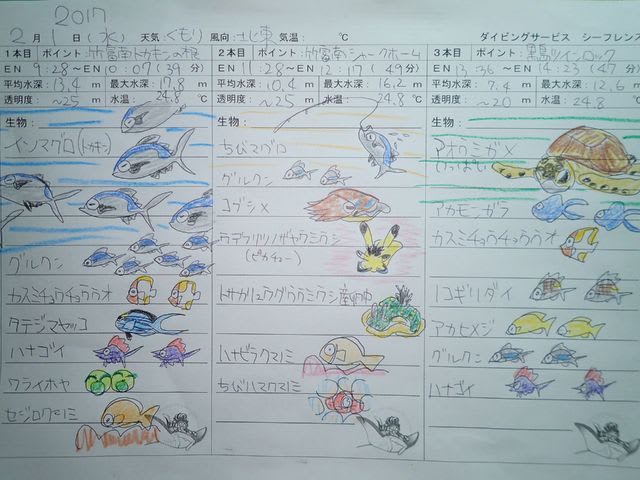 2017
2月1日(水) 天気:くもり 風向:北東 気温: ℃ ダイビングサービス シーフレンズ
1本目 ポイント:竹富南トカキンの根
EN 9:28～EN 10:07(39分)
平均水深:13.4m 最大水深:17.8m
透明度:～25m 水温:24.8℃
生物:
イソマグロ(トカキン)
グルクン
カスミチョウチョウウオ
タテジマヤッコ
ハナゴイ
ワライボヤ
セジロクマノミ
2本目 ポイント:竹富南シャークホーム
EN 11:28～EN 12:17(49分)
平均水深:10.4m 最大水深:16.2m
透明度:～25m 水温:24.8℃
生物:
ちびマグロ
グルクン
コブシメ
ウデフリツノザヤウミウシ
(ピカチュー)
トサカリュウグウウミウシ産卵中
ハナビラクマノミ
ちびハマクマノミ
3本目 ポイント:黒島ツインロック
EN 13:36～EN 14:23(47分)
平均水深:7.4m 最大水深:12.6m
透明度:～20m 水温:24.8
生物:
アオウミガメ
いっぱい
アカモンガラ
カスミチョウチョウウオ
ノコギリダイ
アカヒメジ
グルクン
ハナゴイ